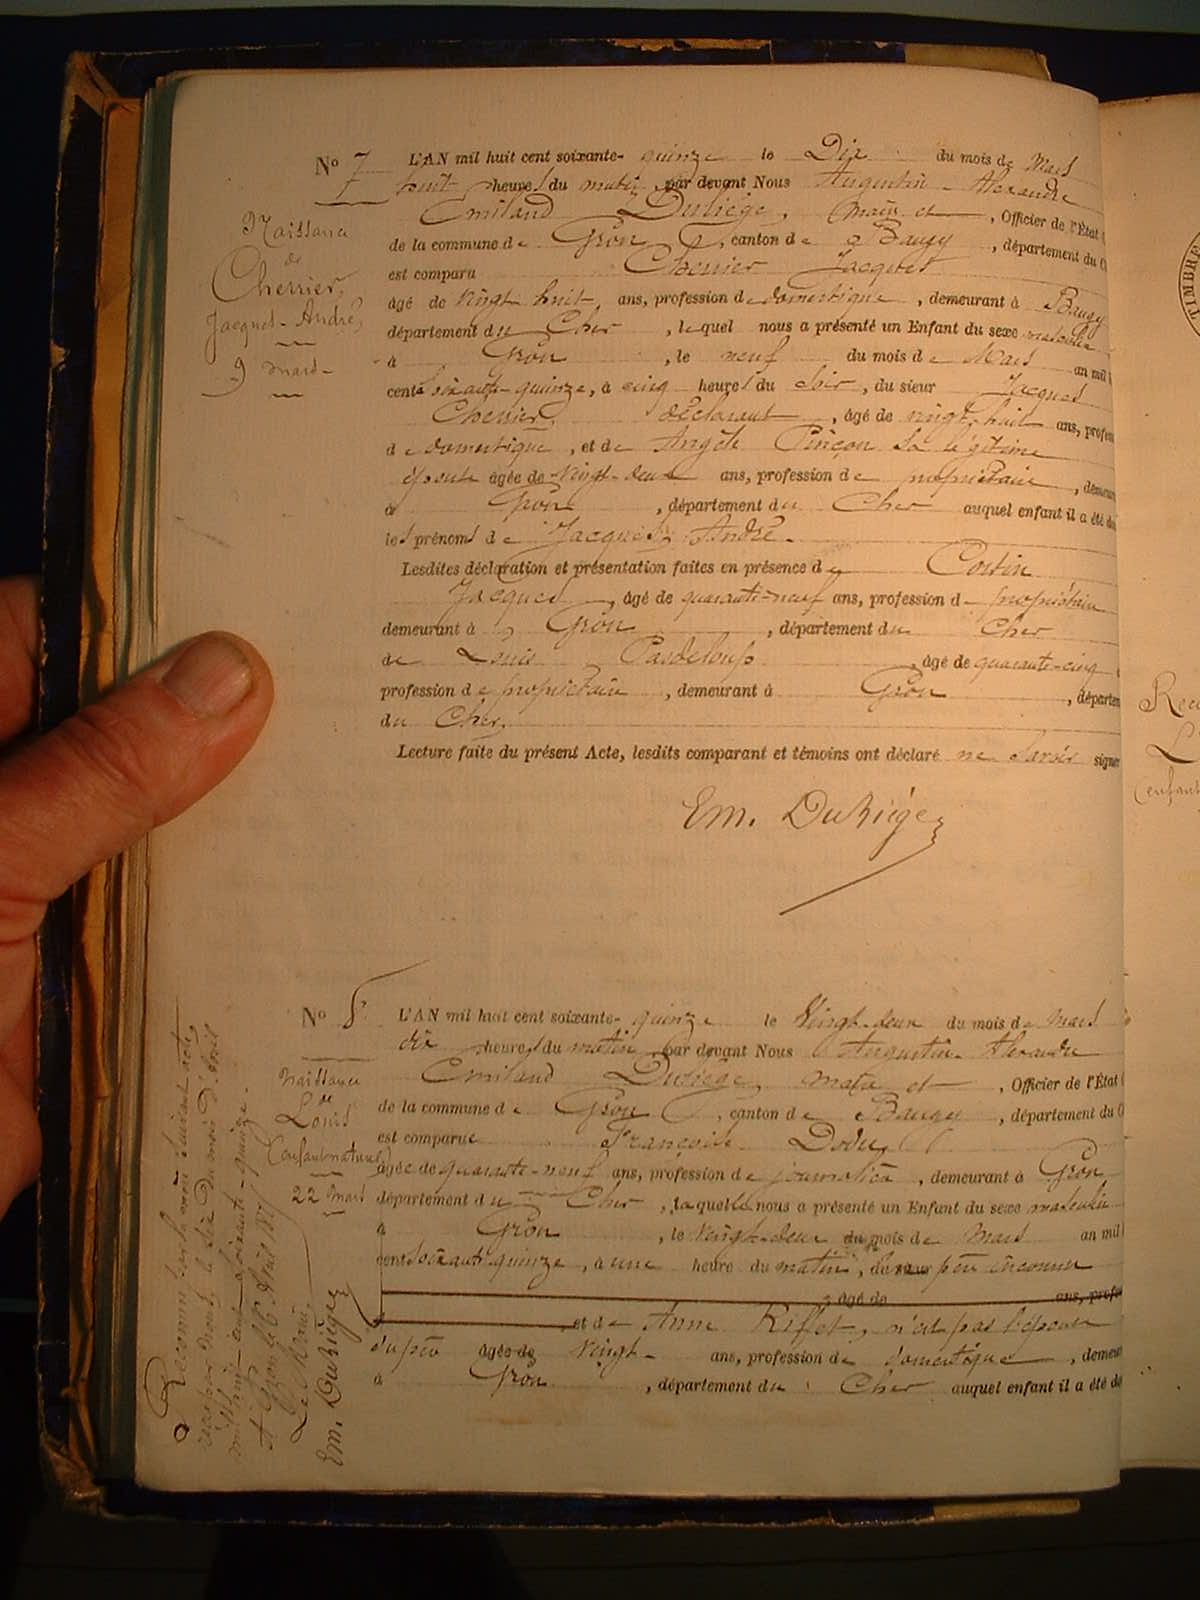 No 7
Naissance
de
Cherrier,
Jacques-André
9 mars
L'AN mil huit cent soixante-quinze le Dix du mois de Mars
huit heures du matin, par devant Nous Augustin-Alexandre
Emiland Duliège, Maire et, Officier de l'État
de la commune de Gron, canton de Baugy, département du C
est comparu Cherrier Jacques
âgé de vingt huit ans, profession de domestique, demeurant à Baugy
département du Cher, lequel nous a présenté un Enfant du sexe masculin
à Gron, le neuf du mois de Mars an mil
cent soixante-quinze, à cinq heures du soir, du sieur Jacques
Cherrier, déclarant, âgé de vingt-huit ans, profes
de domestique, et de Angèle Pinçon sa légitime
épouse âgée de vingt-deux ans, profession de propriétaire, demeur
à Gron, département du Cher auquel enfant il a été do
les prénoms de Jacques, André.
Lesdites déclaration et présentation faites en présence de
Jacques, âgé de quarante-neuf ans, profession de propriétaire
demeurant à Gron, département du Cher
de Louis Pasdeloup, âgé de quarante-cinq
profession de propriétaire, demeurant à Gron, départem
du Cher.
Lecture faite du présent Acte, lesdits comparant et témoins ont déclaré ne savoir signer
Em. Duliège
No 8
naissance
de
Louis
(enfant naturel)
22 mars
L'AN mil huit cent soixante-quinze le vingt-deux du mois de mars
dix heures du matin, par devant Nous Augustin-Alexandre
Emiland Duliège, maire et, Officier de l'État
de la commune de Gron, canton de Baugy, département du C
est comparue Françoise Dodu
âgée de quarante-neuf ans, profession de journalière, demeurant à Gron
département du Cher, laquelle nous a présenté un Enfant du sexe masculin
à Gron, le vingt-deux du mois de mars an mil
cent soixante quinze, à une heure du matin, de père inconnu
âgé de ans, profe
et de Anne Riffet, n'est pas l'épouse
du père âgée de vingt ans, profession de domestique, demeu
à Gron, département du Cher auquel enfant il a été do
Reconnu par
le six du mois d'avril
mil huit cent soixante-quinze.
A Gron le 6 avril 187
Le Maire,
Em. Duliège
TIMBRE
Reco
L
(enfant